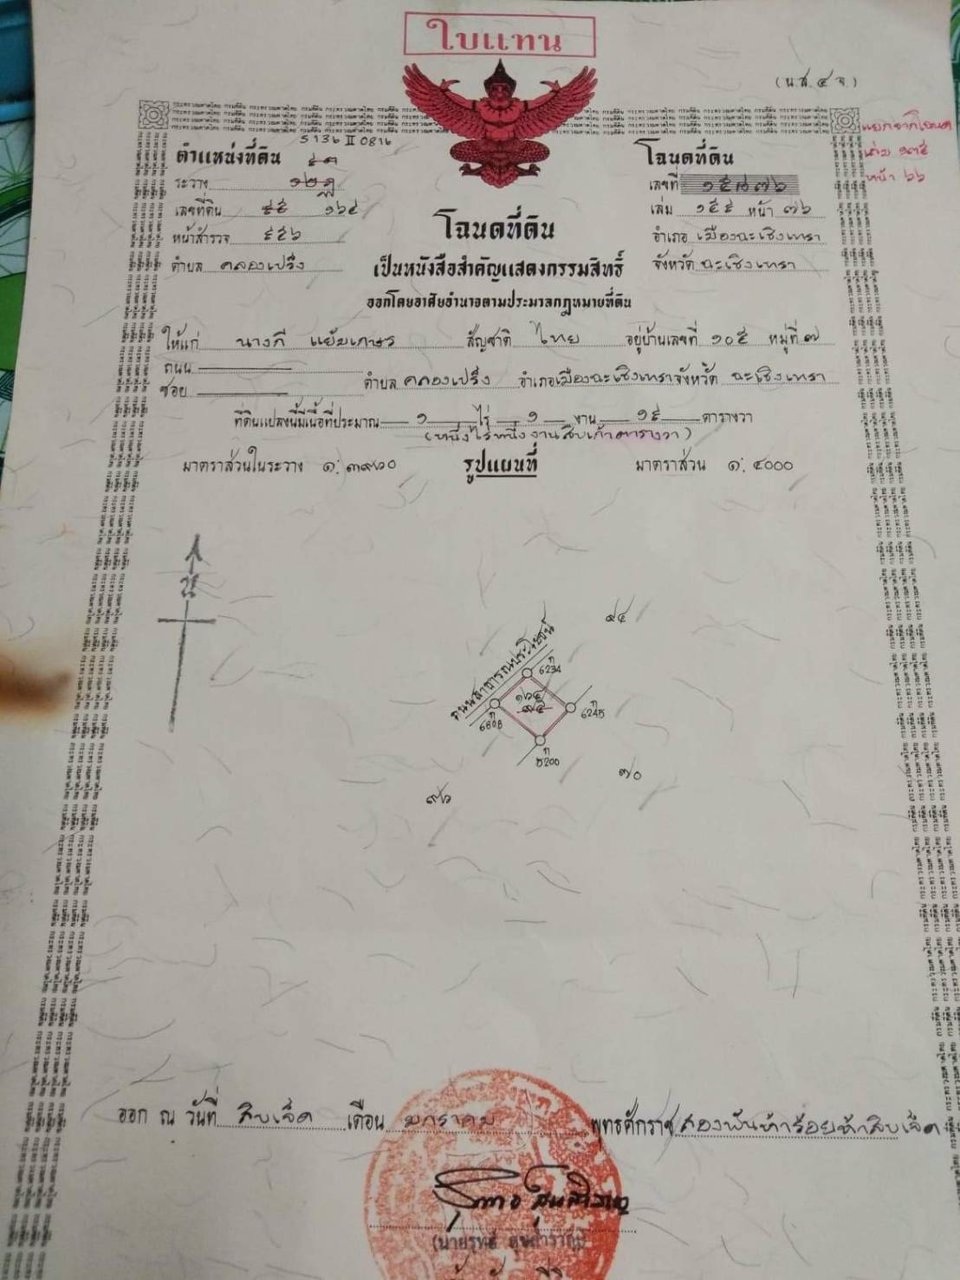 ใบแทน
(น.ส. ๔ จ.)
ตำแหน่งที่ดิน
5136 II 0816
ระวาง
เลขที่ดิน ๙๕ ๑๖๔
หน้าสำรวจ ๕๕๖
ตำบล คลองเปร็ง
โฉนดที่ดิน
เลขที่ ๑๕๘๗๖
เล่ม ๑๕๙ หน้า ๗๖
อำเภอ เมืองฉะเชิงเทรา
จังหวัด ฉะเชิงเทรา
หน้า ๖๖
โฉนดที่ดิน
เป็นหนังสือสำคัญแสดงกรรมสิทธิ์
ออกโดยอาศัยอำนาจตามประมวลกฎหมายที่ดิน
ให้แก่ นางกี แย้มเกษร สัญชาติ ไทย อยู่บ้านเลขที่ ๑๐๕ หมู่ที่ ๗
ถนน
ซอย ตำบล คลองเปร็ง อำเภอ เมืองฉะเชิงเทรา จังหวัด ฉะเชิงเทรา
ที่ดินแปลงนี้มีเนื้อที่ประมาณ ๑ ไร่ ๑ งาน ๑๙ ตารางวา
(หนึ่งไร่หนึ่งงานสิบเก้าตารางวา)
มาตราส่วนในระวาง ๑:๓๙๖๐ รูปแผนที่ มาตราส่วน ๑:๔๐๐๐
น
ถนนสาธารณประโยชน์
๙๔
ก 6234
๑๖๔
ก 6245
ก
๗๐
๙๖
ออก ณ วันที่ สิบเจ็ด เดือน มกราคม พุทธศักราช สองพันห้าร้อยห้าสิบเจ็ด